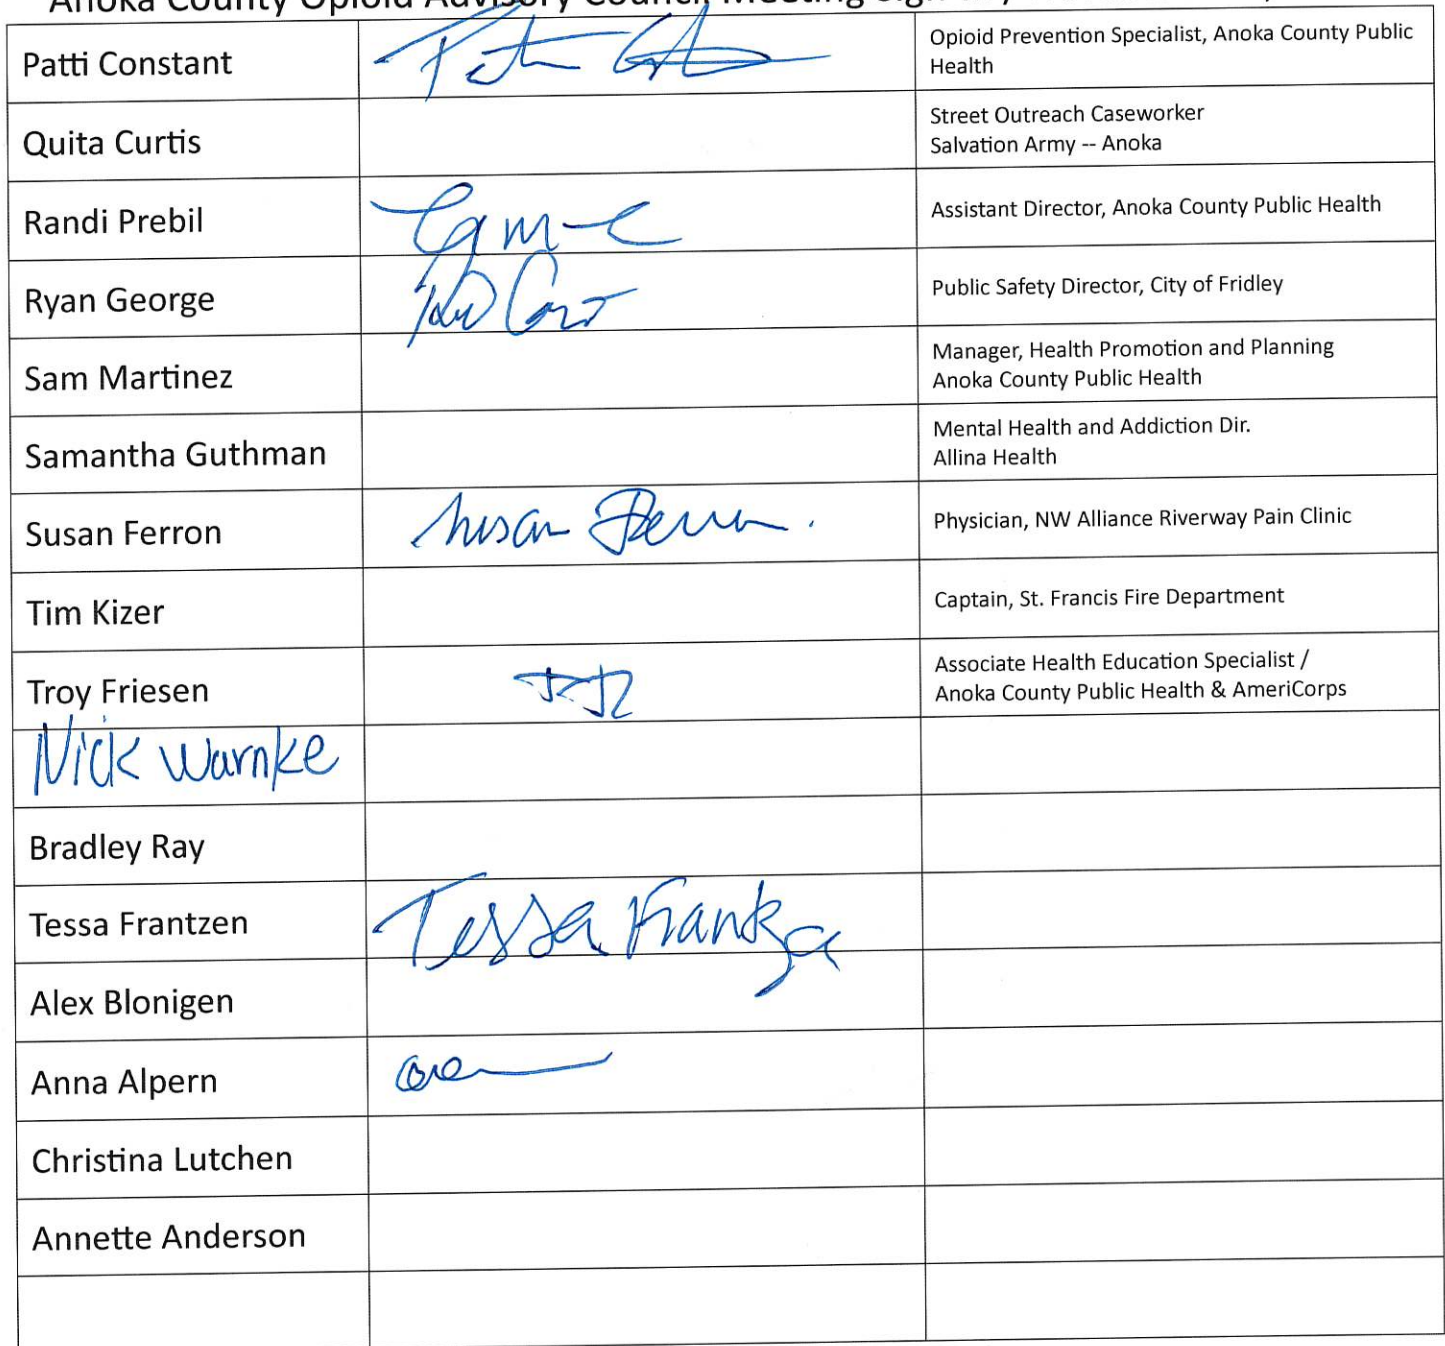 Anoka County Opioid Advisory Council Meeting Sign
Patti Constant
Opioid Prevention Specialist, Anoka County Public
Health
Quita Curtis
Street Outreach Caseworker
Salvation Army -- Anoka
Randi Prebil
Assistant Director, Anoka County Public Health
Ryan George
Public Safety Director, City of Fridley
Sam Martinez
Manager, Health Promotion and Planning
Anoka County Public Health
Samantha Guthman
Mental Health and Addiction Dir.
Allina Health
Susan Ferron
Susan Ferron
Physician, NW Alliance Riverway Pain Clinic
Tim Kizer
Captain, St. Francis Fire Department
Troy Friesen
Associate Health Education Specialist /
Anoka County Public Health & AmeriCorps
Nick Warnke
Bradley Ray
Tessa Frantzen
Tessa
Alex Blonigen
Anna Alpern
Christina Lutchen
Annette Anderson